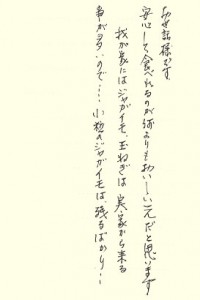 お世話様です
安心して食べれるのが何よりもおいしい元だと思います
我が家にはジャガイモ、玉ねぎは実家から来る
事が多いので…小粒のジャガイモは残るばかり…